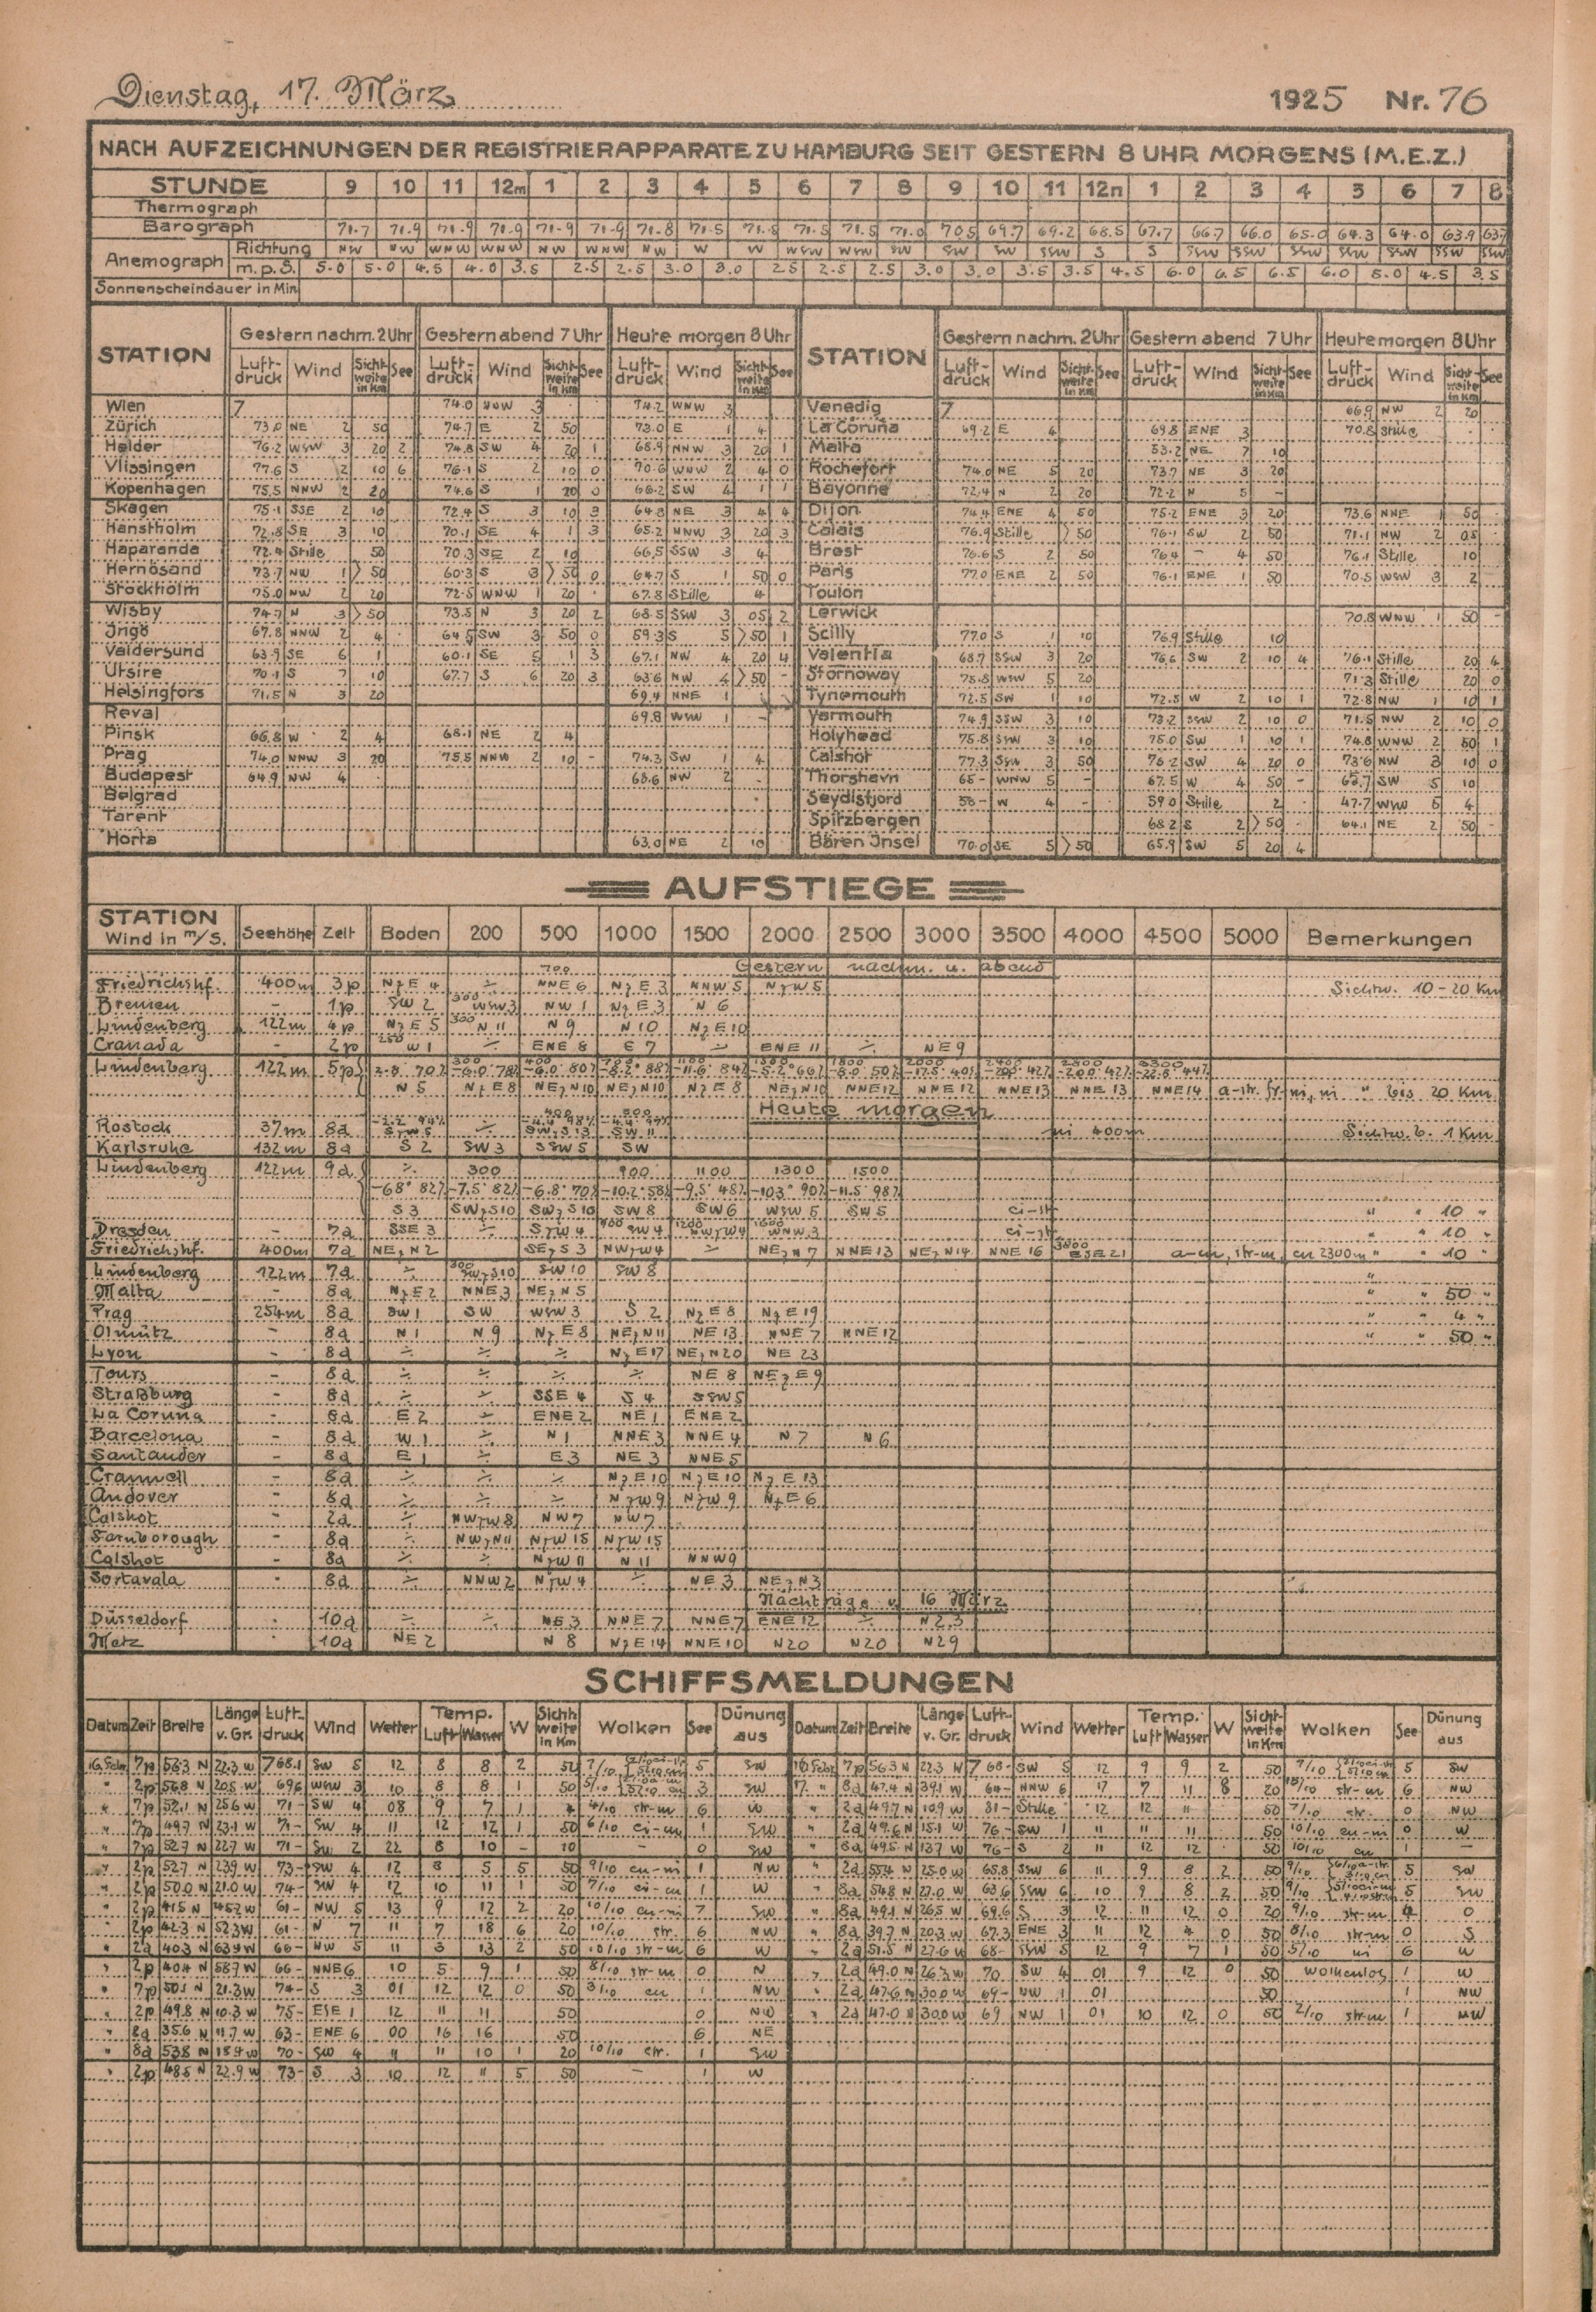 Dienstag, 17. März 1925 Nr. 76
NACH AUFZEICHNUNGEN DER REGISTRIERAPPARATE ZU HAMBURG SEIT GESTERN 8 UHR MORGENS (M.E.Z.)
STUNDE 9 10 11 12m 1 2 3 4 5 6 7 8 9 10 11 12n 1 2 3 4 5 6 7 8
Thermograph
Barograph 71.7 71.9 71.9 71.9 71.9 71.9 71.8 71.5 71.5 71.5 71.5 71.0 70.5 69.7 69.2 68.5 67.7 66.7 66.0 65.0 64.3 64.0 63.9
Anemograph Richtung NW NW WNW WNW NW WNW NW W W WSW WSW SW SW SW SSW S S SSW SSW SSW SSW SSW SSW SSW
m.p.S. 5.0 5.0 4.5 4.0 3.5 2.5 2.5 3.0 3.0 2.5 2.5 2.5 3.0 3.0 3.5 3.5 4.5 6.0 6.5 6.5 6.0 5.0 4.5 3.5
Sonnenscheindauer in Min
STATION Gestern nachm. 2 Uhr Gestern abend 7 Uhr Heute morgen 8 Uhr STATION Gestern nachm. 2 Uhr Gestern abend 7 Uhr Heute morgen 8 Uhr
Luftdruck Wind Sichtweite in Km See Luftdruck Wind Sichtweite in Km See Luftdruck Wind Sichtweite in Km See Luftdruck Wind Sichtweite in Km See Luftdruck Wind Sichtweite in Km See Luftdruck Wind Sichtweite in Km See
Wien 7 74.0 WNW 3 74.2 WNW 3 Venedig 7 66.9 NW 2 20
Zürich 73.0 NE 2 50 74.7 E 2 50 73.0 E 1 4 La Coruña 69.2 E 4 69.8 ENE 3 70.8 Stille
Helder 76.2 WSW 3 20 2 74.8 SW 4 20 1 68.9 NNW 3 20 1 Malta 53.2 NE 7 10
Vlissingen 77.6 S 2 10 6 76.1 S 2 10 0 70.6 WNW 2 4 0 Rochefort 74.0 NE 5 20 73.7 NE 3 20
Kopenhagen 75.5 NNW 2 20 74.6 S 1 20 0 66.2 SW 4 1 1 Bayonne 72.4 N 2 20 72.2 N 5 -
Skagen 75.1 SSE 2 10 72.4 S 3 10 3 64.3 NE 3 4 4 Dijon 74.4 ENE 4 50 75.2 ENE 3 20 73.6 NNE 1 50
Hanstholm 72.8 SE 3 10 70.1 SE 4 1 3 65.2 NNW 3 20 3 Calais 76.9 Stille >50 76.1 SW 2 50 71.1 NW 2 05
Haparanda 72.4 Stille 50 70.3 SE 2 10 66.5 SSW 3 4 Brest 76.6 S 2 50 76.4 - 4 50 76.1 Stille 10
Hernösand 73.7 NW 1 >50 60.3 S 3 >50 0 64.7 S 1 50 0 Paris 77.0 ENE 2 50 76.1 ENE 1 50 70.5 WSW 3 2
Stockholm 75.0 NW 2 20 72.5 WNW 1 20 67.8 Stille 4 Toulon
Wisby 74.7 N 3 >50 73.5 N 3 20 2 68.5 SSW 3 05 2 Lerwick 70.8 WNW 1 50 -
Ingö 67.8 NNW 2 4 64.5 SW 3 50 0 59.3 S 5 >50 1 Scilly 77.0 S 1 10 76.9 Stille 10
Valdersund 63.9 SE 6 1 60.1 SE 5 1 3 67.1 NW 4 20 4 Valentia 68.7 SSW 3 20 76.6 SW 2 10 4 76.1 Stille 20 4
Utsire 70.1 S 7 10 67.7 S 6 20 3 63.6 NW 4 >50 - Stornoway 75.8 WSW 5 20 71.3 Stille 20 0
Helsingfors 71.5 N 3 20 69.4 NNE 1 Tynemouth 72.5 SW 1 10 72.5 W 2 10 1 72.8 NW 1 10 1
Reval 69.8 WSW 1 - Yarmouth 74.9 SSW 3 10 73.2 SSW 2 10 0 71.5 NW 2 10 0
Pinsk 66.8 W 2 4 68.1 NE 2 4 Holyhead 75.8 SSW 3 10 75.0 SW 1 10 1 74.8 WNW 2 50 1
Prag 74.0 NNW 3 20 75.5 NNW 2 10 - 74.3 SW 1 4 Calshot 77.3 SSW 3 50 76.2 SW 4 20 0 73.6 NW 3 10 0
Budapest 64.9 NW 4 68.6 NW 2 Thorshavn 65- WNW 5 - 67.5 W 4 50 - 65.7 SW 5 10
Belgrad Seydisfjord 58- W 4 - 59.0 Stille 2 47.7 WSW 5 4
Tarent Spitzbergen 68.2 S 2 >50 64.1 NE 2 50 -
Horta 63.0 NE 2 10 Bären Insel 70.0 SE 5 >50 65.9 SW 5 20 4
AUFSTIEGE
STATION Wind in m/S. Seehöhe Zeit Boden 200 500 1000 1500 2000 2500 3000 3500 4000 4500 5000 Bemerkungen
Gestern nachm. u. abend
Friedrichshf. 400m 3p NzE 4 ÷ 700 NNE 6 NzE 3 NNW 5 NzW 5 Sichtw. 10-20 Km
Bremen - 1p SW 2 300 WSW 3 NW 1 NzE 3 N 6
Lindenberg 122m 4p NzE 5 300 N 11 N 9 N 10 NzE 10
Cranada - 2p 250 W 1 ÷ ENE 8 E 7 ÷ ENE 11 ÷ NE 9
Lindenberg 122m 5p
N 5 NzE 8 NEzN 10 NEzN 10 NzE 8 NEzN 10 NNE 12 NNE 12 NNE 13 NNE 13 NNE 14 a-str. fr-ni, ni " bis 20 Km
Heute morgen
Rostock 37m 8a SzW 5 ÷ SWzS 13 SW 11 ni 400m Sichtw. b. 1 Km
Karlsruhe 132m 8a S 2 SW 3 SSW 5 SW
Lindenberg 122m 9a ÷ 300 900 1100 1300 1500
-6.8° 82% -7.5° 82% -6.8° 70% -10.2° 58% -9.5° 48% -10.3° 90% -11.5° 98%
S 3 SWzS 10 SWzS 10 SW 8 SW 6 WSW 5 SW 5 ci-str " " 10 "
Dresden - 7a SSE 3 ÷ SzW 4 SW 4 WNW 3 ci-str " " 10 "
Friedrichshf. 400m 7a NEzN 2 SEzS 3 NWzW 4 ÷ NEzN 7 NNE 13 NEzN 14 NNE 16 3800 ESE 21 a-cu, str-cu, cu 2300m " " 10 "
Lindenberg 122m 7a ÷ 300 SWzS 10 SW 10 SW 8 "
Malta - 8a NzE 2 NNE 3 NEzN 5 " " 50 "
Prag 254m 8a SW 1 SW WSW 3 S 2 NzE 8 NzE 19 " " 4 "
Olmütz - 8a N 1 N 9 NzE 8 NEzN 11 NE 13 NNE 7 NNE 12 " " 50 "
Lyon - 8a ÷ ÷ ÷ NzE 17 NEzN 20 NE 23
Tours - 8a ÷ ÷ ÷ ÷ NE 8 NEzE 9
Straßburg - 8a ÷ ÷ SSE 4 S 4 SSW 5
La Coruña - 8a E 2 ÷ ENE 2 NE 1 ENE 2
Barcelona - 8a W 1 ÷ N 1 NNE 3 NNE 4 N 7 N 6
Santander - 8a E 1 ÷ E 3 NE 3 NNE 5
Cranwell - 8a ÷ ÷ ÷ NzE 10 NzE 10 NzE 13
Andover - 8a ÷ ÷ ÷ NzW 9 NzW 9 NzE 6
Calshot - 2a ÷ NWzW 8 NW 7 NW 7
Farnborough - 8a ÷ NWzN 11 NzW 15 NzW 15
Calshot - 8a ÷ ÷ NzW 11 N 11 NNW 9
Sortavala - 8a ÷ NNW 2 NzW 4 ÷ NE 3 NEzN 3
Nachträge v. 16 März
Düsseldorf - 10a ÷ ÷ NE 3 NNE 7 NNE 7 ENE 12 ÷ N 23
Metz - 10a NE 2 N 8 NzE 14 NNE 10 N 20 N 20 N 29
SCHIFFSMELDUNGEN
Datum Zeit Breite Länge v. Gr. Luftdruck Wind Wetter Temp. Luft Wasser W Sichtweite in Km Wolken See Dünung aus Datum Zeit Breite Länge v. Gr. Luftdruck Wind Wetter Temp. Luft Wasser W Sichtweite in Km Wolken See Dünung aus
7p 56.3 N 22.3 W 768.1 SW 5 12 8 8 2 50 7/10 5 SW 7p 56.3 N 22.3 W 768- SW 5 12 9 9 2 50 7/10 5 SW
" 2p 56.8 N 20.5 W 69.6 WSW 3 10 8 8 1 50 5/10 3 SW 17. " 8a 47.4 N 39.1 W 64- NNW 6 17 7 11 8 20 10/10 str-cu 6 NW
" 7p 52.1 N 25.6 W 71- SW 4 08 9 7 1 4 4/10 str-cu 6 W " 2a 49.7 N 10.9 W 81- Stille 12 12 11 50 7/10 str. 0 NW
" 7p 49.7 N 23.1 W 71- SW 4 11 12 12 1 50 6/10 ci-cu 1 SW " 2a 49.6 N 15.1 W 76- SW 1 11 11 11 50 10/10 cu-ni 0 W
" 7p 52.7 N 22.7 W 71- SW 2 22 8 10 - 10 - 0 SW " 8a 49.5 N 13.7 W 76- S 2 11 12 12 50 10/10 cu 1 -
" 2p 52.7 N 23.9 W 73- SW 4 12 8 5 5 50 9/10 cu-ni 1 NW " 2a 55.4 N 25.0 W 65.8 SSW 6 11 9 8 2 50 9/10 5 SW
" 2p 50.0 N 21.0 W 74- SW 4 12 10 11 1 50 7/10 ci-cu 1 W " 8a 54.8 N 27.0 W 63.6 SSW 6 10 9 8 2 50 9/10 5 SW
" 2p 41.5 N 45.2 W 61- NW 5 13 9 12 2 20 10/10 cu-ni 7 SW " 8a 49.1 N 26.5 W 69.6 S 3 12 11 12 0 20 9/10 str-cu 4 0
" 2p 42.3 N 52.3 W 61- N 7 11 7 18 6 20 10/10 str. 6 NW " 8a 39.7 N 20.3 W 67.3 ENE 3 11 12 4 0 50 8/10 str-cu 0 S
" 2a 40.3 N 63.9 W 66- NW 5 11 3 13 2 50 10/10 str-cu 6 W " 2a 51.5 N 27.6 W 68- SSW 5 12 9 7 1 50 5/10 ni 6 W
" 2p 40.4 N 58.7 W 66- NNE 6 10 5 9 1 50 8/10 str-cu 0 N " 2a 49.0 N 26.3 W 70 SW 4 01 9 12 0 50 wolkenlos 1 W
" 7p 50.5 N 21.3 W 74- S 3 01 12 12 0 50 3/10 cu 1 NW " 2a 47.6 N 30.0 W 69- NW 1 01 50 1 NW
" 2p 49.8 N 10.3 W 75- ESE 1 12 11 11 50 0 NW " 2a 47.0 N 30.0 W 69 NW 1 01 10 12 0 50 2/10 str-cu 1 NW
" 8a 35.6 N 11.7 W 63- ENE 6 00 16 16 50 6 NE
" 8a 53.8 N 18.9 W 70- SW 4 11 11 10 1 20 10/10 str. 1 SW
" 2p 48.5 N 22.9 W 73- S 3 10 12 11 5 50 - 1 W